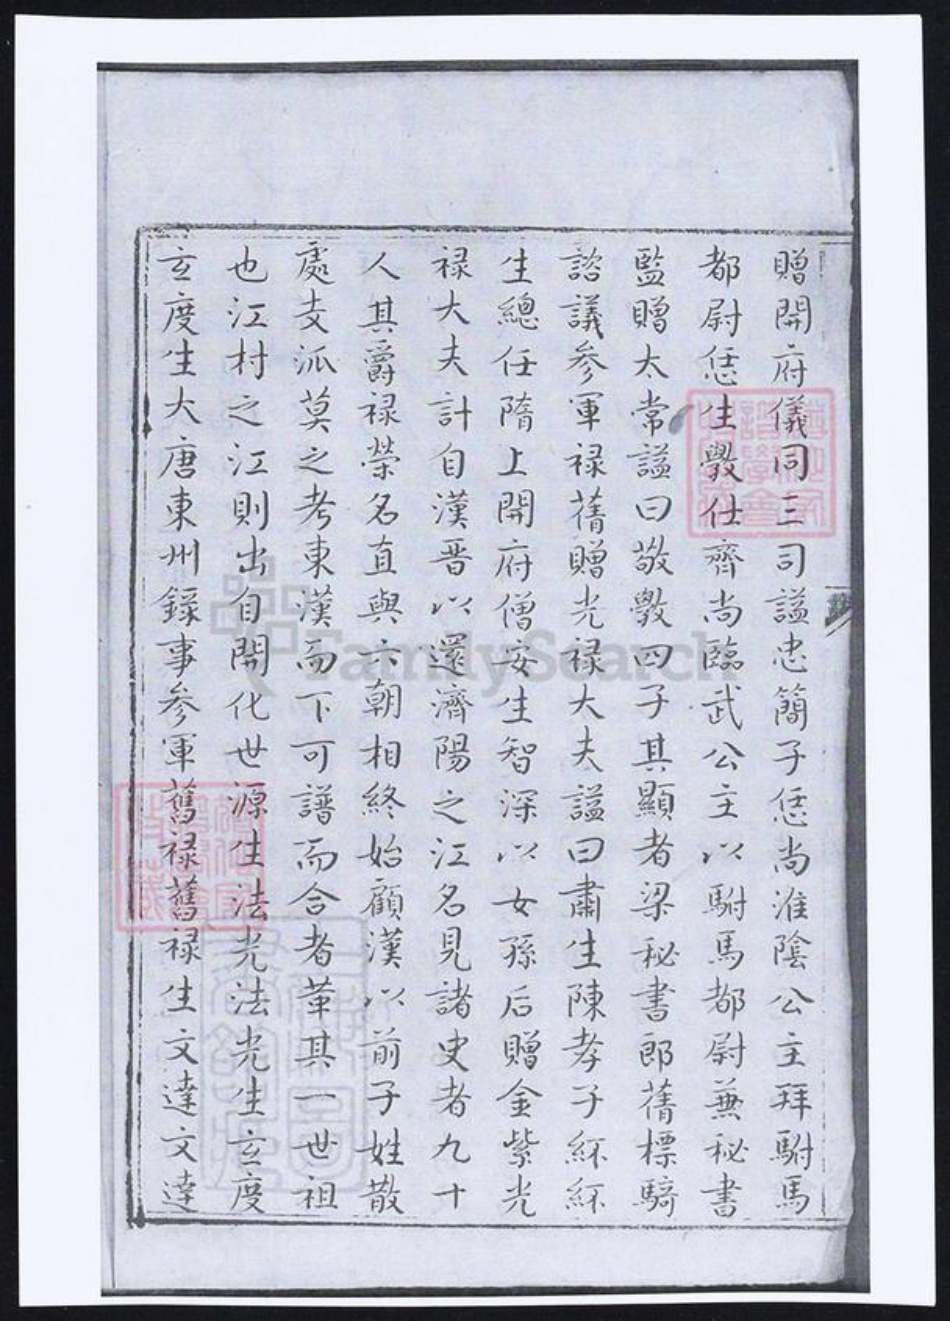 贈開府儀同三司謚忠簡子恁尚淮陰公主拜駙馬
都尉恁生斆仕齊尚臨武公主以駙馬都尉兼秘書
監贈大常謚曰敬斆四子其顯者梁秘書郎蒨標騎
諮議參軍祿蒨贈光祿大夫謚曰肅生陳孝子紑紑
生總任隋上開府僧安生智深以女孫后贈金紫光
祿大夫計自漢晋以還濟陽之江名見諸史者九十
人其爵祿榮名直與六朝相終始顧漢以前子姓散
處支派莫之考東漢而下可譜而合者革其一世祖
也江村之江則出自開化世源生法光法光生玄度
玄度生大唐東州錄事參軍舊祿舊祿生文達文達
FamilySearch